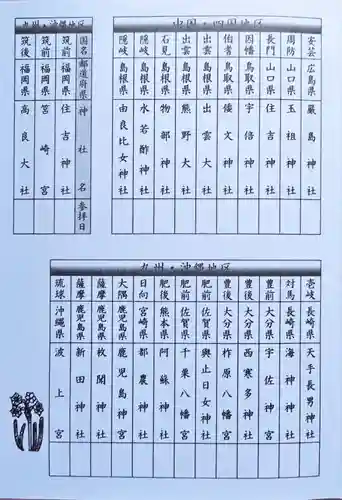 中国・四国地区
安芸 広島県 嚴島神社
周防 山口県 玉祖神社
長門 山口県 住吉神社
因幡 鳥取県 宇倍神社
伯耆 鳥取県 倭文神社
出雲 島根県 出雲大社
出雲 島根県 熊野大社
石見 島根県 物部神社
隠岐 島根県 水若酢神社
隠岐 島根県 由良比女神社
九州・沖縄地区
国名 都道府県 神社名 参拝日
筑前 福岡県 住吉神社
筑前 福岡県 筥崎宮
筑後 福岡県 高良大社
九州・沖縄地区
壱岐 長崎県 天手長男神社
対馬 長崎県 海神神社
豊前 大分県 宇佐神宮
豊後 大分県 西寒多神社
豊後 大分県 柞原八幡宮
肥前 佐賀県 與止日女神社
肥前 佐賀県 千栗八幡宮
肥後 熊本県 阿蘇神社
日向 宮崎県 都農神社
大隅 鹿児島県 鹿児島神宮
薩摩 鹿児島県 枚聞神社
薩摩 鹿児島県 新田神社
琉球 沖縄県 波上宮